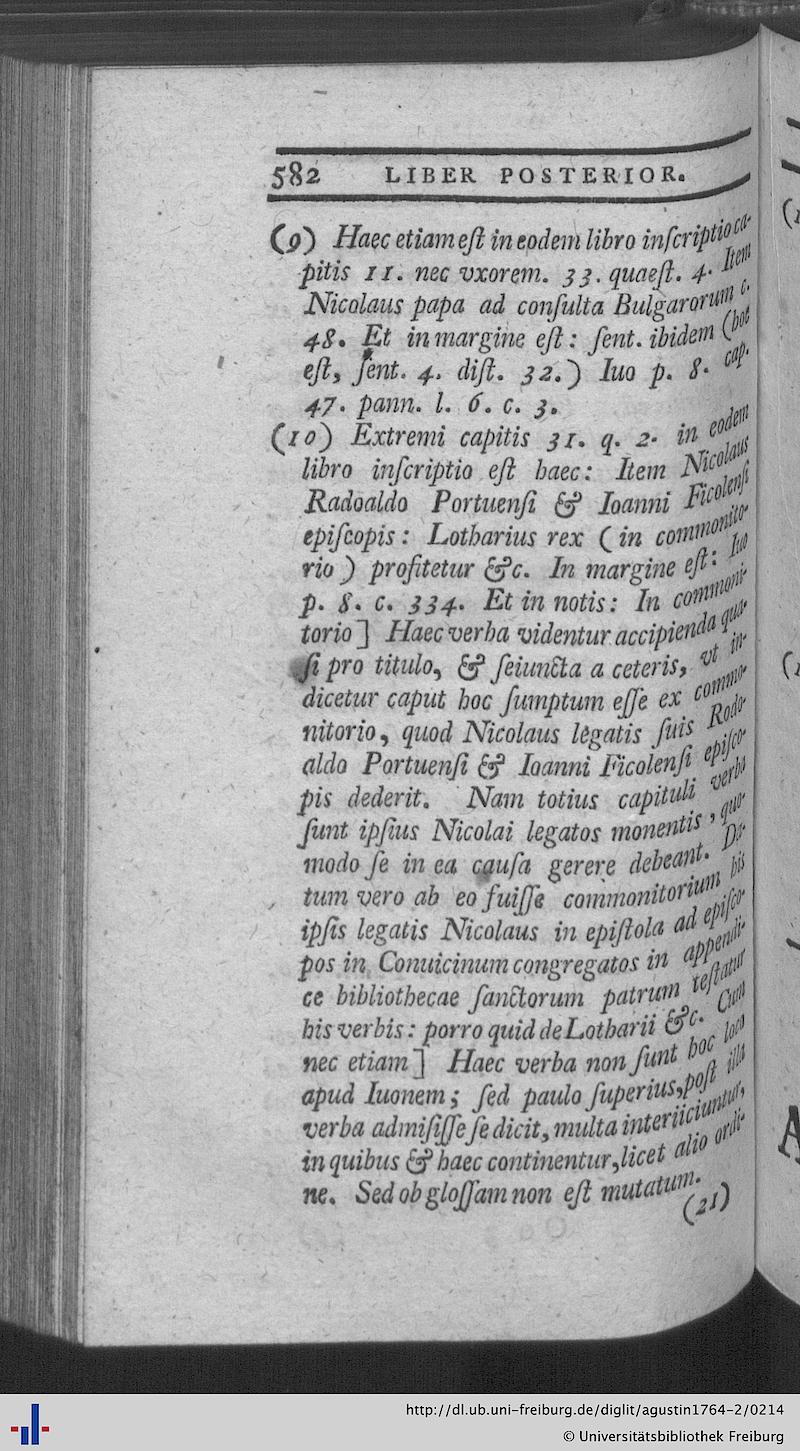 582 LIBER POSTERIOR.
(9) Haec etiam eſt in eodem libro inſcriptio ca-
pitis 11. nec vxorem. 33. quaeſt. 4. Item
Nicolaus papa ad conſulta Bulgarorum c.
48. Et in margine eſt: ſent. ibidem (hoc
eſt, ſent. 4. diſt. 32.) Iuo p. 8. cap.
47. pann. l. 6. c. 3.
(10) Extremi capitis 31. q. 2. in eodem
libro inſcriptio eſt haec: Item Nicolaus
Radoaldo Portuenſi & Ioanni Ficolenſi
epiſcopis: Lotharius rex (in commonito-
rio) profitetur &c. In margine eſt: Iuo
p. 8. c. 334. Et in notis: In commoni-
torio] Haec verba videntur accipienda qua-
ſi pro titulo, & ſeiuncta a ceteris, vt in-
dicetur caput hoc ſumptum eſſe ex commo-
nitorio, quod Nicolaus legatis ſuis Rodo-
aldo Portuenſi & Ioanni Ficolenſi epiſco-
pis dederit. Nam totius capituli verba
ſunt ipſius Nicolai legatos monentis, quo-
modo ſe in ea cauſa gerere debeant. Da-
tum vero ab eo fuiſſe commonitorium his
ipſis legatis Nicolaus in epiſtola ad epiſco-
pos in Conuicinum congregatos in appendi-
ce bibliothecae ſanctorum patrum teſtatur
his verbis: porro quid de Lotharii &c. Cum
nec etiam] Haec verba non ſunt hoc loco
apud Iuonem; ſed paulo ſuperius, poſt illa
verba admiſiſſe ſe dicit, multa interiiciuntur,
in quibus & haec continentur, licet alio ordi-
ne. Sed ob gloſſam non eſt mutatum.
(21)
http://dl.ub.uni-freiburg.de/diglit/agustin1764-2/0214
© Universitätsbibliothek Freiburg